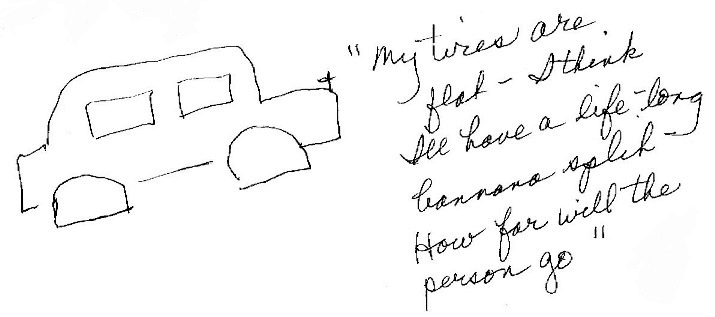 "My tires are
flat - I think
I'll have a life-long
bannana split -
How far will the
person go"